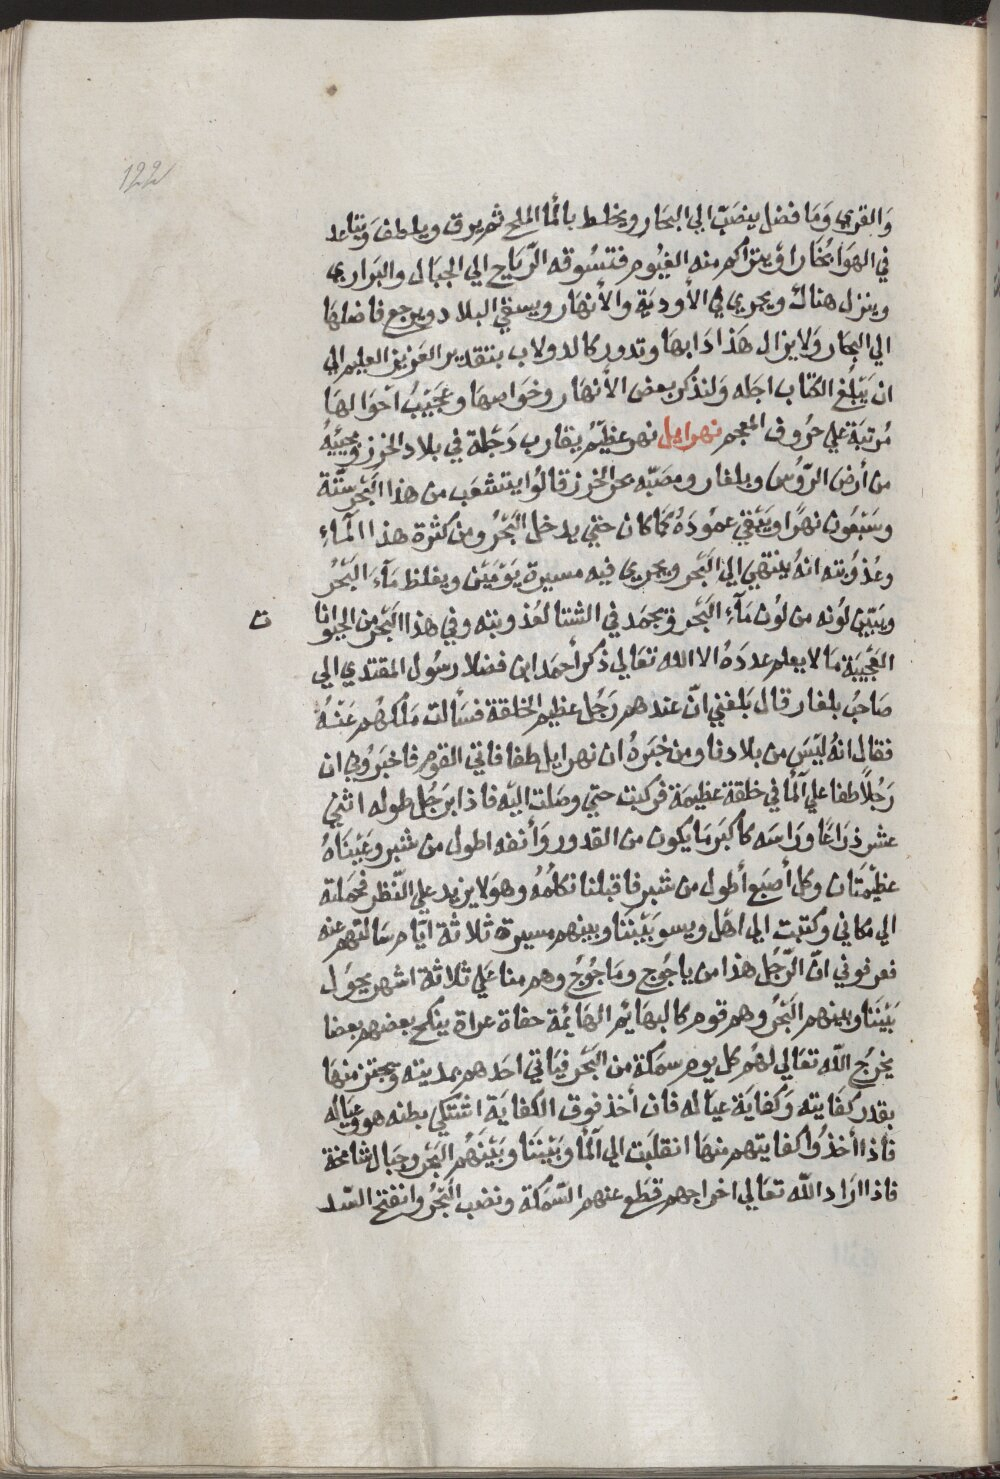 122
وَالقري وَمَا فضل ينصَبّ الي البحَار ويخلط بالمَا المَلح ثم يرق ويلطف وَيتَاعد
في الهوَا بُخَارا وَيتراكم منه الغيُوم فتسُوقه الرّيَاح الي الجبَال والبَراري
وينزل هناك ويجري في الأودَية والأنهَار ويسقي البلاد ويرجع فاضلهَا
الي البحَار وَلا يزال هَذا دَابهَا وتدور كالدولاب بتقدير العَزيز العليم الي
ان يَبْلُغ الكتاب اجَله وَلنذكر بعض الأنهَار وخوَاصهَا وعَجَيبُ احْوَالهَا
مُرتبَة علي حرُوف المعجم نهر اىل نهر عظيْمُ يقارب دَجْلة في بلاد الخزر ومجيْيُه
من أرض الرّوُس وبلغار ومصَبّه بحر الخزر قالوُا يتشعَب من هذا البَحْر ستّة
وسَبْعُون نهرًا ويَبْقي عمُودَهُ كمَا كان حتيّ يدخل البَحْرُ ومن كثرة هذا المآءِ
وعُذوُبته انهُ ينتهي الي البَحْر ويجري فيه مسيرة يَوْمَيْن ويغلظ مَآءِ البَحْرُ
ويبَيّن لوُنه من لوُن مَآءِ البَحْر ويجمَد في الشتا لعُذوبته وفي هذا البَحْر من الحيوَانا
ت
العَجْيبَة مَا لا يعلم عددَهُ الا الله تعَالي ذكر أحمَد ابن فضلا رسُول المقتدي الي
صَاحبُ بلغار قال بَلغني انّ عندهم رَجُل عظيم الخلقة فسَألت مَلكهُم عَنْهُ
فقال انهُ ليْسَ من بلادنا ومن خبَرهُ ان نهر اىل طفا فاتي القوم فاخبَرُوني ان
رَجُلاً طفا علي المآ في خلقة عظيمَة فركبت حتي وصَلت اليْه فاذا برَجُل طوله اثني
عشر ذرَاعًا ورَاسَه كاكبَر مَا يكون من القدور وَأنفه اطول من شبر وعَيْنَاهُ
عظيْمَتَان وكل أصبَع أطول من شبر فاقبلنا نكلمُهُ وهوَ لا يزيد علي النّظر فحَملته
الي مكاني وكتبت الي اهَل ويسو بَيْنَنا وبينهم مسيرة ثلاثة ايّام سَالتهم عنه
فعرفوني انّ الرّجُل هذا من ياجُوج ومَاجُوجُ وهم منا عَلي ثلاثة اشهر يحُوُل
بَيْنَنَا وبينهم البَحْرُ وهم قوم كالبهَايْم الهَايْمة حفاة عراة ينكح بعضهم بعضا
يخرجُ اللّه تعَالي لهُم كل يوم سمَكة من البَحْر فيَاتي احَدهم بمديته ويجتز منهَا
بقدر كفَايته وَكفايَة عيَاله فان أخذ فوق الكفايَة اشتكي بطنه هو وَعيَاله
فَاذا أخذوُا كفايتهم منهَا انقلَبَت الي المآ وبَيْنَنَا وبَيْنَهُم البَحْر وجَبَال شامخة
فاذا ارَاد اللّه تعَالي اخراجهم قطَع عنهم السّمَكة ونضب البَحْرُ وانفتح السّد